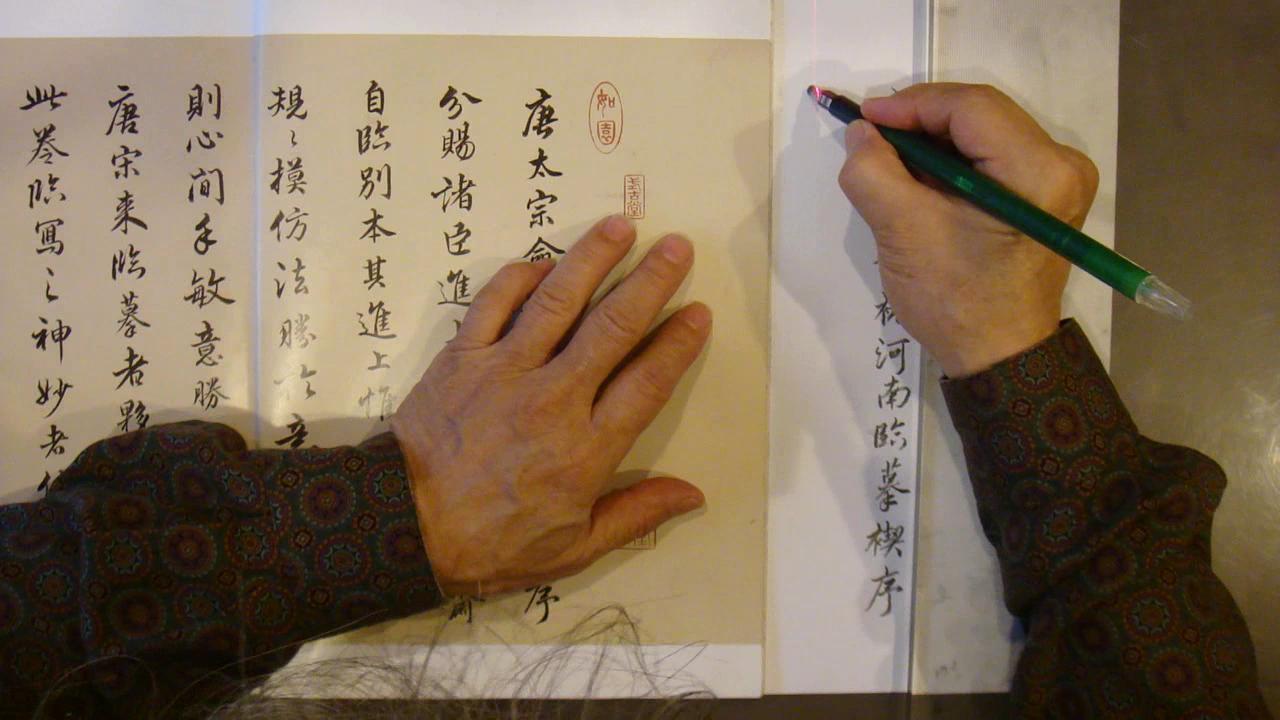 河南臨摹楔序
如
唐太宗命 序
分賜諸臣進
自臨別本其進上惟
規〻摸仿法勝於意
則心間手敏意勝
唐宋来臨摹者夥
此卷臨寫之神妙者